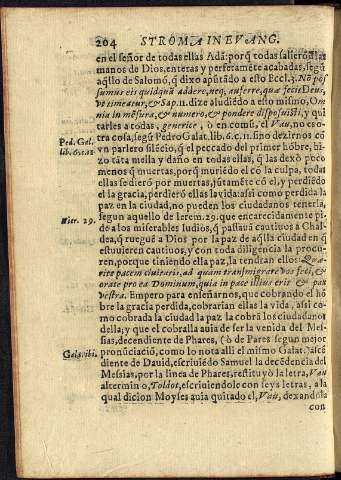 204 STROMA IN EVANG.
en el señor de todas ellas Adã: porq̃ todas salierõ ð las
manos de Dios, enteras y perfetamẽte acabadas, segũ
aq̃llo de Salomõ, q̃ dixo apũtãdo a esto Eccl. 3. Nõ pos
sumus eis quidquã addere, neq; auferre, quæ fecit Deus,
vt timeatur, & Sap. 11. dize aludiẽdo a esto mismo, Om
nia in mẽsura, & numero, & pondere disposuisti, y qui
tarles a todas, generice, ò en comũ, el Vau, no es o-
tra cosa, segũ Pedro Galat. lib. 6. c. 11. sino dezirnos cõ
Ped. Gal.
lib. 6. c. 11.
vn parlero silẽcio, q̃ el peccado del primer hõbre, hi-
zo tãta mella y daño en todas ellas, q̃ las dexò poco
menos q̃ muertas, porq̃ muriẽdo el cõ la culpa, todas
ellas se dierõ por muertas, jũtamẽte cõ el, y perdiẽdo
el la gracia, perdierõ ellas la vida: assi como perdida la
paz en la ciudad, no pueden los ciudadanos tenerla,
segun aquello de Ierem. 29. que encarecidamente pi-
Hier. 29.
de a los miserables Iudios, q̃ passaua cautiuos a Chal-
dea, q̃ ruegué a Dios por la paz de aq̃lla ciudad en q̃
estuuieren cautiuos, y con toda diligencia la procu-
ren, porque tiniendo ella paz, la tendran ellos: Quæ-
rite pacem ciuitatis, ad quam transmigrare vos feci, &
orate pro ea Dominum, quia in pace illius erit & pax
vestra. Empero para enseñarnos, que cobrando el hõ
bre la gracia perdida, cobrarian ellas la vida, assi co-
mo cobrada la ciudad la paz la cobrã los ciudadanos
della; y que el cobralla auia de ser la venida del Mes-
sias, decendiente de Phares, (ò de Pares segun mejor
pronũciació, como lo nota alli el mismo Galat.) ascẽ
Galat. ibi.
diente de Dauid, escriuiẽdo Samuel la decẽdencia del
Messias, por la linea de Phares, restituyò la letra, Vau
al termino, Toldot, escriuiendole con seys letras, a la
qual dicion Moyses auia quitado el, Vau, dexandola
con